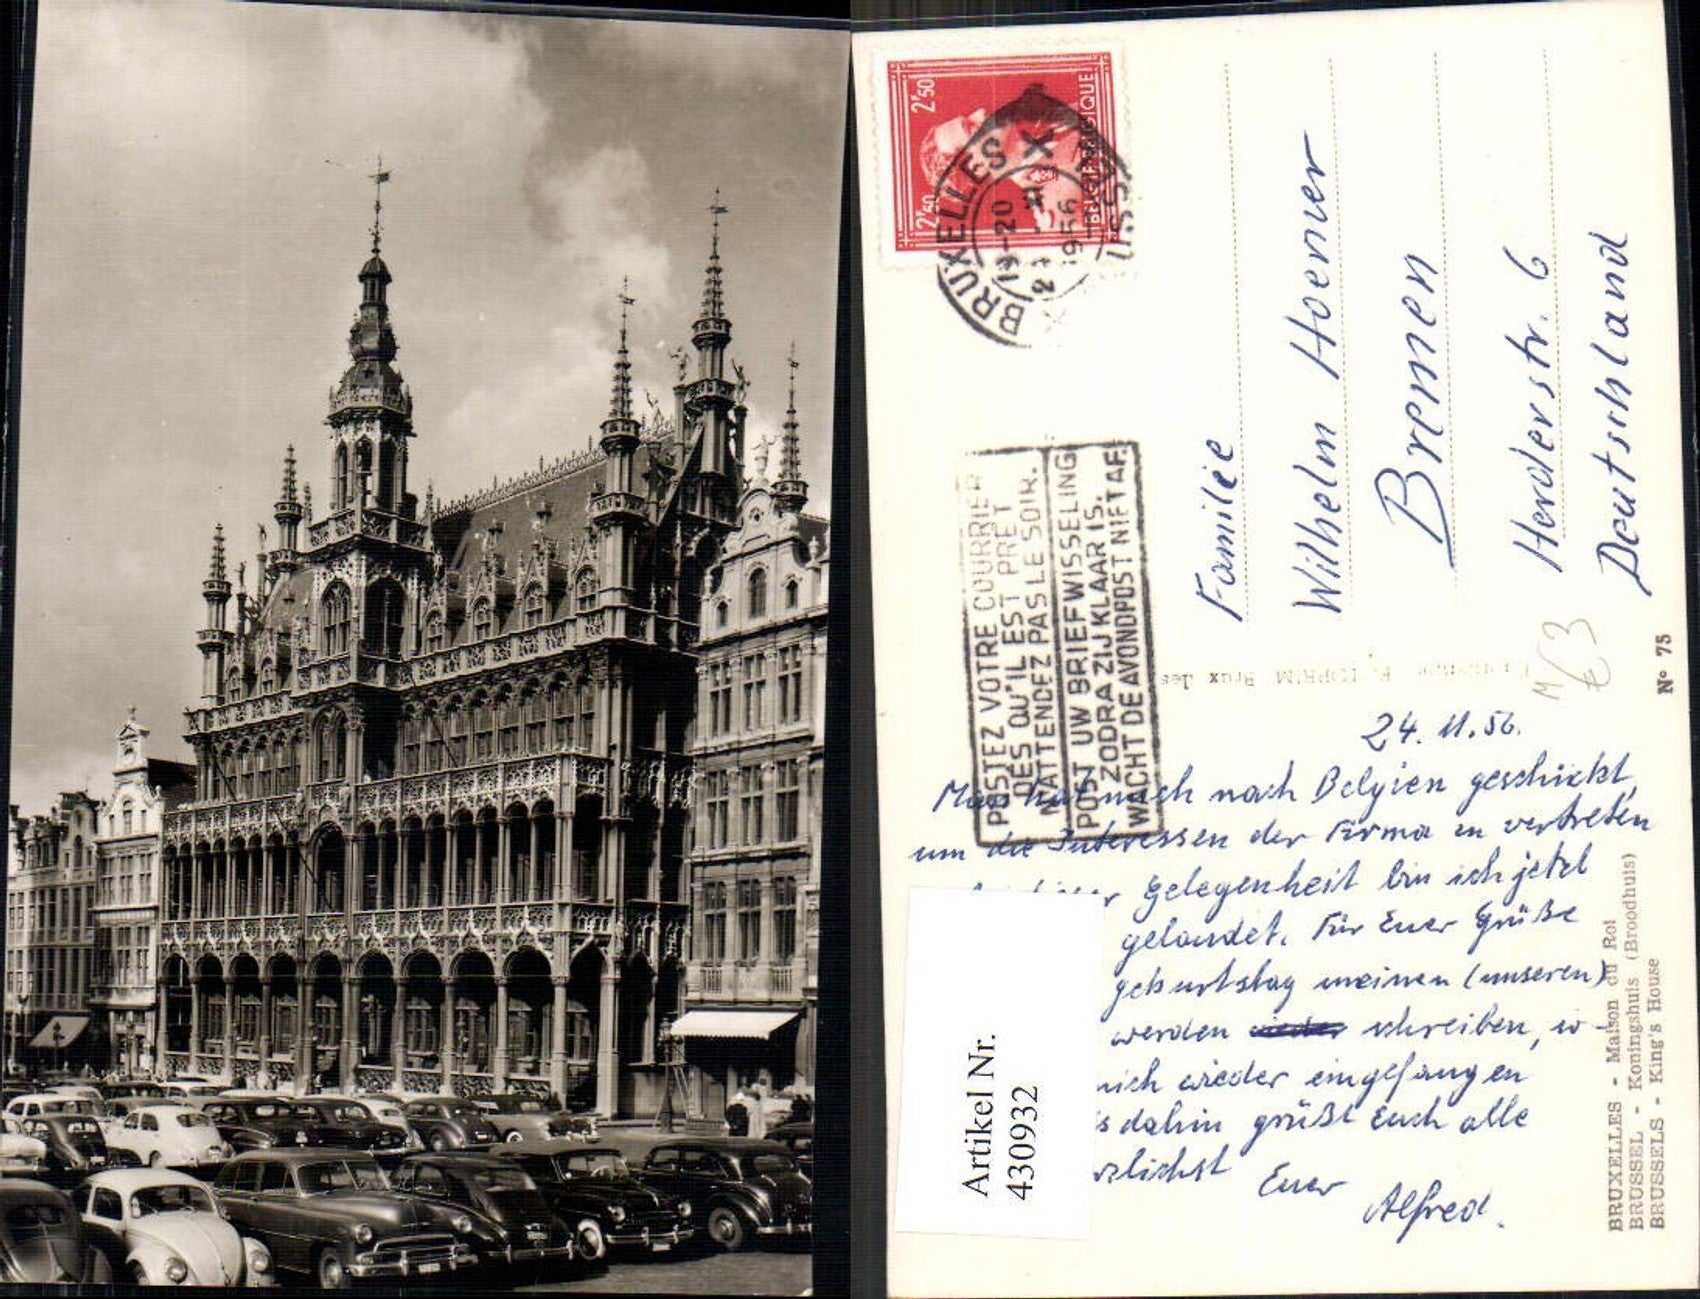 2F50
2F50
BELGIE-BELGIQUE
BRUXELLES X
19-20
1956
BRUSSEL
POSTEZ VOTRE COURRIER
DES QU'IL EST PRET
N'ATTENDEZ PAS LE SOIR.
POST UW BRIEFWISSELING
ZODRA ZIJ KLAAR IS.
WACHT DE AVONDPOST NIET AF.
Familie
Wilhelm Hoener
Bremen
Herderstr. 6
Deutschland
M
€3
24. 11. 56.
Man hat mich nach Belgien geschickt,
um die Interessen der Firma zu vertreten
Gelegenheit bin ich jetzt
gelandet. Für Euer Grüße
geburtstag meinen (unseren)
werden schreiben, wo
mich wieder eingefangen
dahin grüßt Euch alle
Euer
Alfred.
Artikel Nr.
430932
BRUXELLES - Maison du Roi
BRUSSEL - Koningshuis (Broodhuis)
BRUSSELS - King's House
Nº 75